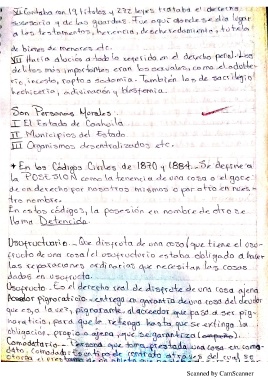 VI Contaba con 19 títulos y 272 leyes trataba el derecho
sucesorio y de las guardas. Fue aquí donde se dio lugar
a los testamentos, herencia, desheredamiento, tutela
de bienes de menores etc.
VII Hacía abocia a todo lo referido en el derecho penal. Los
delitos más importantes eran los sexuales, como el adulte-
rio, incesto, rapto y sodomía. También los de sacrilegio
hechicería, adivinación y blasfemia.
Son Personas Morales:
I El Estado de Coahuila
II Municipios del Estado
III Organismos descentralizados etc.
* En los Códigos Civiles de 1870 y 1884.- Se define a
la POSESIÓN como la tenencia de una cosa o el goce
de un derecho por nosotros mismos o por otro en nues-
tro nombre.
En estos códigos, la posesión en nombre de otro se
llama Detención
Usufructuario.- Que disfruta de una cosa (que tiene el uso-
fructo de una cosa) el usufructuario estaba obligado a hacer
las reparaciones ordinarias que necesitan las cosas
dadas en usufructo.
Usufructo.- Es el derecho real de disfrute de una cosa ajena
Acreedor pignoraticio.- entrega en garantía de una cosa del deudor
que es, a la vez, pignorante al acreedor que pasa a ser pig-
noraticio, para que la retenga hasta que se extinga la
obligación, propia o ajena, que se garantiza
Comodatario.- Persona que toma prestada una cosa en como-
dato, comodato: Es un tipo de contrato a través del cual se
Scanned by CamScanner